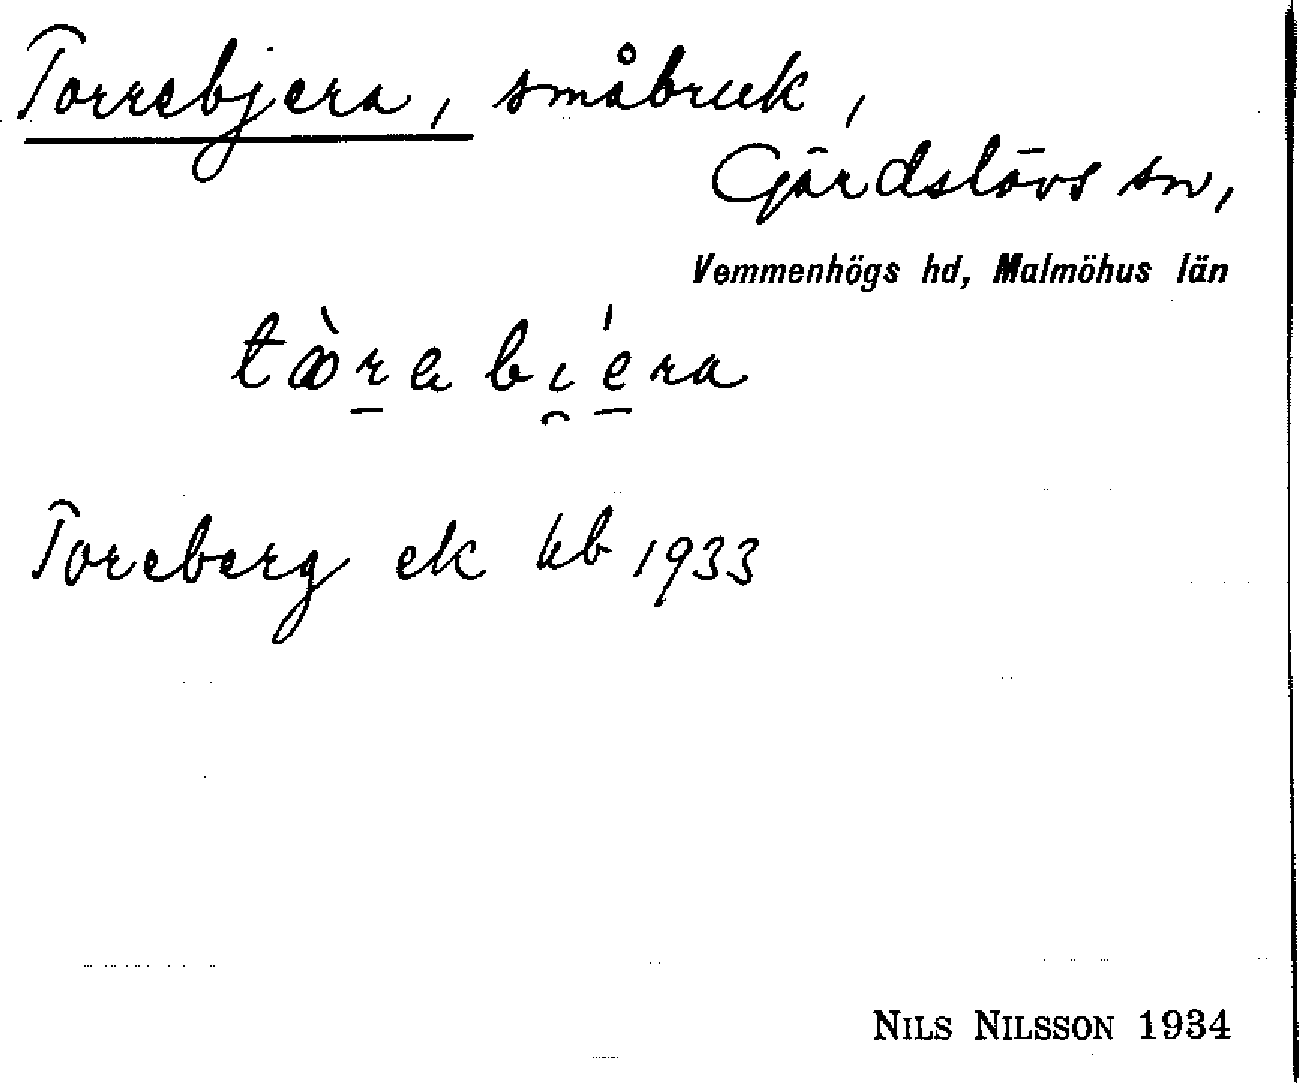 Torrebjera, småbruk,
Gärdslövs sn,
Vemmenhögs hd, Malmöhus län
Toreberg ek kb 1933
NILS NILSSON 1934